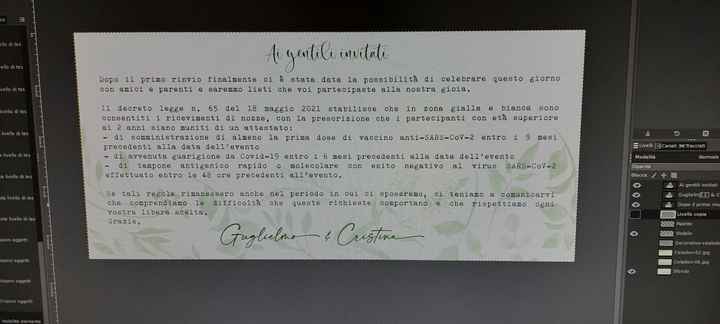 Ai gentili invitati
Dopo il primo rinvio finalmente ci è stata data la possibilità di celebrare questo giorno
con amici e parenti e saremmo lieti che voi partecipaste alla nostra gioia.
Il decreto legge n. 65 del 18 maggio 2021 stabilisce che in zona gialla e bianca sono
consentiti i ricevimenti di nozze, con la prescrizione che i partecipanti con età superiore
ai 2 anni siano muniti di un attestato:
- di somministrazione di almeno la prima dose di vaccino anti-SARS-CoV-2 entro i 9 mesi
precedenti alla data dell'evento
- di avvenuta guarigione da Covid-19 entro i 6 mesi precedenti alla data dell'evento
- di tampone antigenico rapido o molecolare con esito negativo al virus SARS-CoV-2
effettuato entro le 48 ore precedenti all'evento.
Se tali regole rimanessero anche nel periodo in cui ci sposeremo, ci teniamo a comunicarvi
che comprendiamo le difficoltà che queste richieste comportano e che rispettiamo ogni
vostra libera scelta.
Grazie.
Guglielmo & Cristina
Livelli
Canali
Tracciati
Modalità
Normale
Opacità
Blocca:
Ai gentili invitati
Guglielmo & 
Dopo il primo
Livello copia
Modello
Sfondo